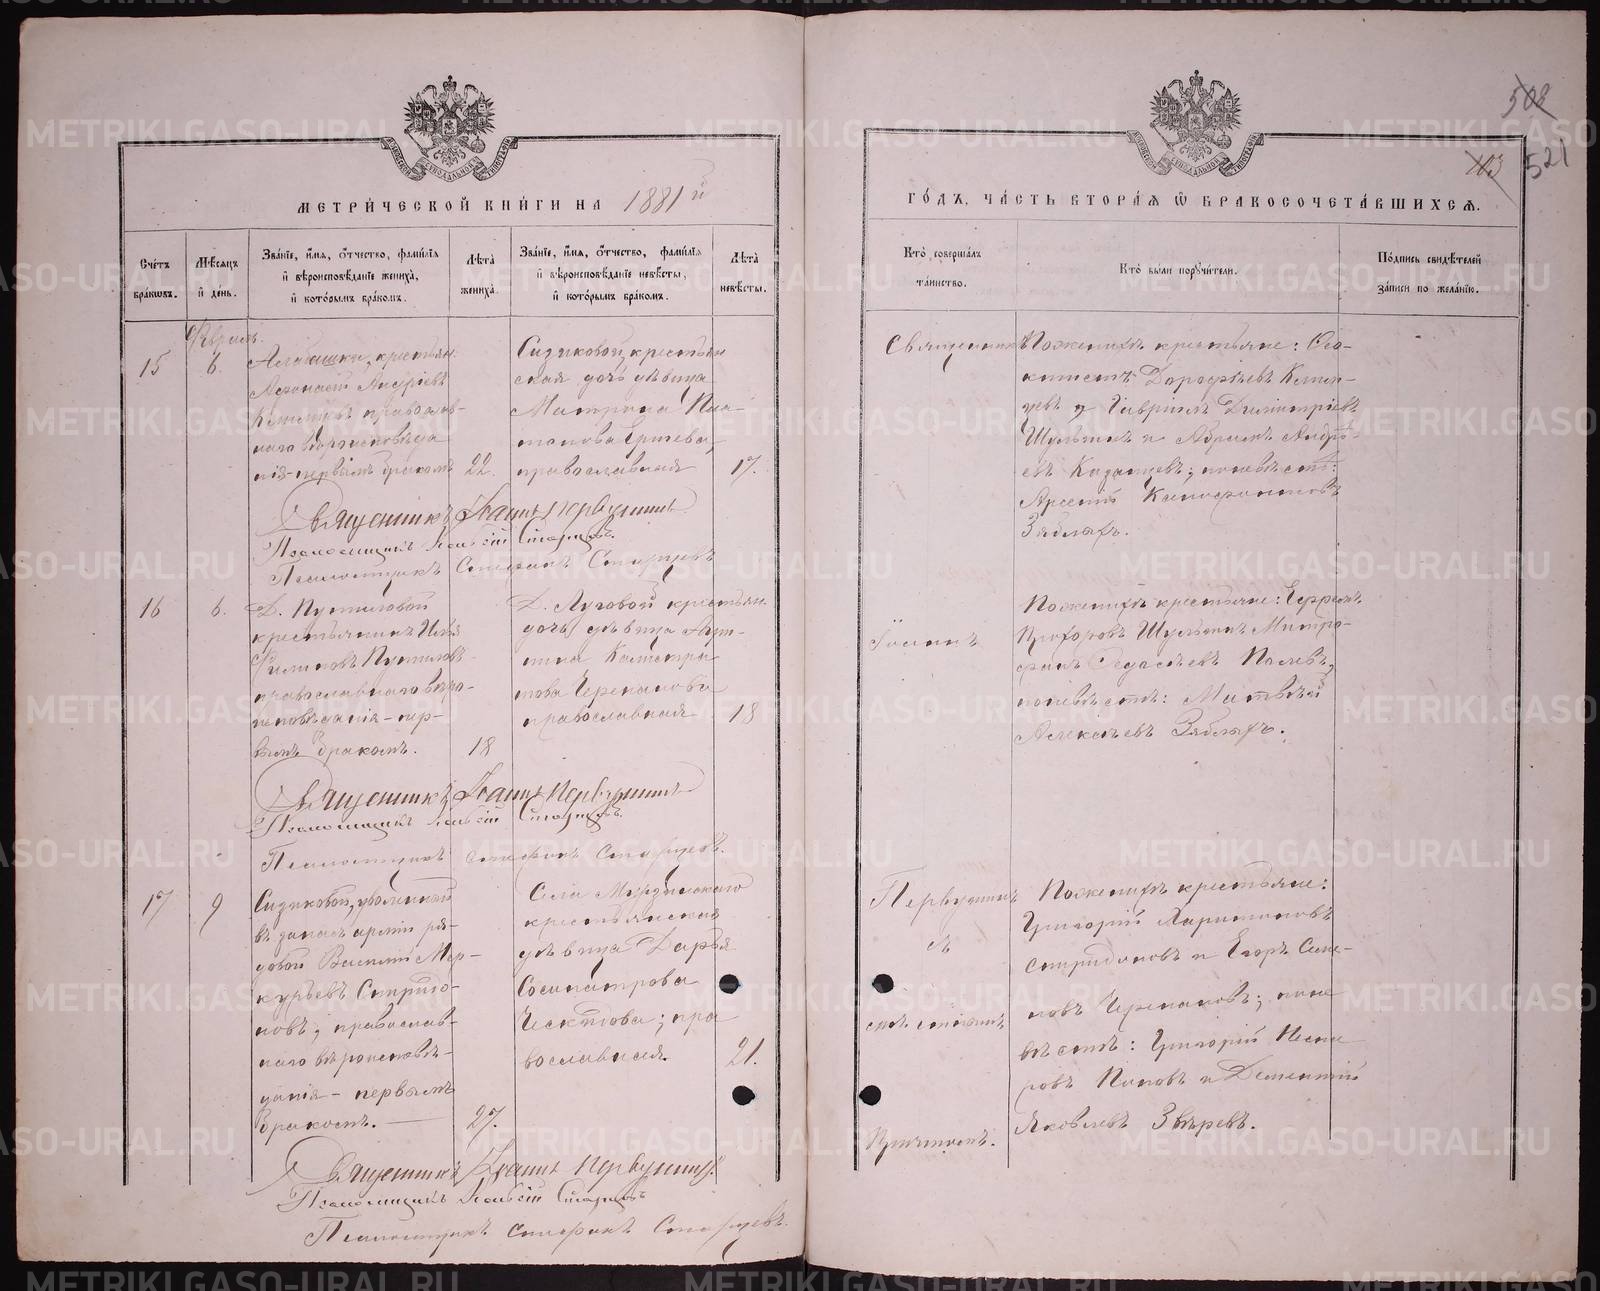 508
103
521
МЕТРИ́ЧЕСКОЙ КНИ́ГИ НА 1881 й
ГО́ДЪ, ЧА́СТЬ ВТОРА́Я Ѿ БРАКОСОЧЕТА́ВШИХСЯ.
Сче́тъ бра́кωвъ.
Мѣ́сяцъ и҆ де́нь.
Зва́нїе, и҆́мя, ѻ҆́тчество, фами́лїя
и҆ вѣроисповѣ́данїе жениха̀,
и҆ кото́рымъ бра́комъ.
Лѣ́та жениха.
Зва́нїе, и҆́мя, ѻ҆́тчество, фами́лїя
и҆ вѣроисповѣ́данїе невѣ́сты,
и҆ кото́рымъ бра́комъ.
Лѣ́та невѣ́сты.
Кто̀ соверша́лъ
та́инство.
Кто̀ бы́ли порꙋчи́тели.
По́дпись свидѣ́телей
за́писи по жела́нїю.
Февраль.
15
6.
крестьян.
Андріевъ
православ-
наго вѣроисповѣда
нія-первымъ бракомъ
22.
крестьян
ская дочь дѣвица
Матрона Пла
тонова
православная
17.
Священникъ
По женихѣ крестьяне:
Дорофѣевъ
и Гавріилъ Димитріевъ
Шульгинъ и Абрамъ Андрі-
евъ Казанцевъ; по невѣстѣ:
Арсеній Ксенофонтовъ
Зяблыхъ.
Священникъ Іоаннъ Первушинъ
Псаломщикъ Старцевъ.
Псаломщикъ Стефанъ Старцевъ
16
6.
Д. Путиловой
крестьянинъ Илья
Филиповъ Путиловъ
православнаго вѣро-
исповѣданія-пер-
вымъ бракомъ.
18
Д. Луговой крестьян.
дочь дѣвица
Черепанова
православная
18
Іоаннъ
По женихѣ крестьяне:
Прохоровъ Шульгинъ Митро-
фанъ
по невѣстѣ: Матвѣй
Алексѣевъ Зяблыхъ.
Священникъ Іоаннъ Первушинъ
Псаломщикъ Старцевъ.
Псаломщикъ Стефанъ Старцевъ.
17
9
уволенный
въ запасъ арміи ря-
довой Василій Мер-
курьевъ Спиридо-
новъ; православ-
наго вѣроисповѣ-
данія - первымъ
бракомъ.
27.
Села Мурзинскаго
крестьянская
дѣвица Дарья
Сосипатрова
пра
вославная.
21.
Первушинъ
съ
Причтомъ.
По женихѣ крестьяне:
Григорій Харитоновъ
Спиридоновъ и Егоръ Семе-
новъ Черепановъ; по не
вѣстѣ: Григорій
ровъ Поповъ и Дементій
Яковлевъ Звѣревъ.
Священникъ Іоаннъ Первушинъ
Псаломщикъ Старцевъ
Псаломщикъ Стефанъ Старцевъ.
METRIKI.GASO-URAL.RU